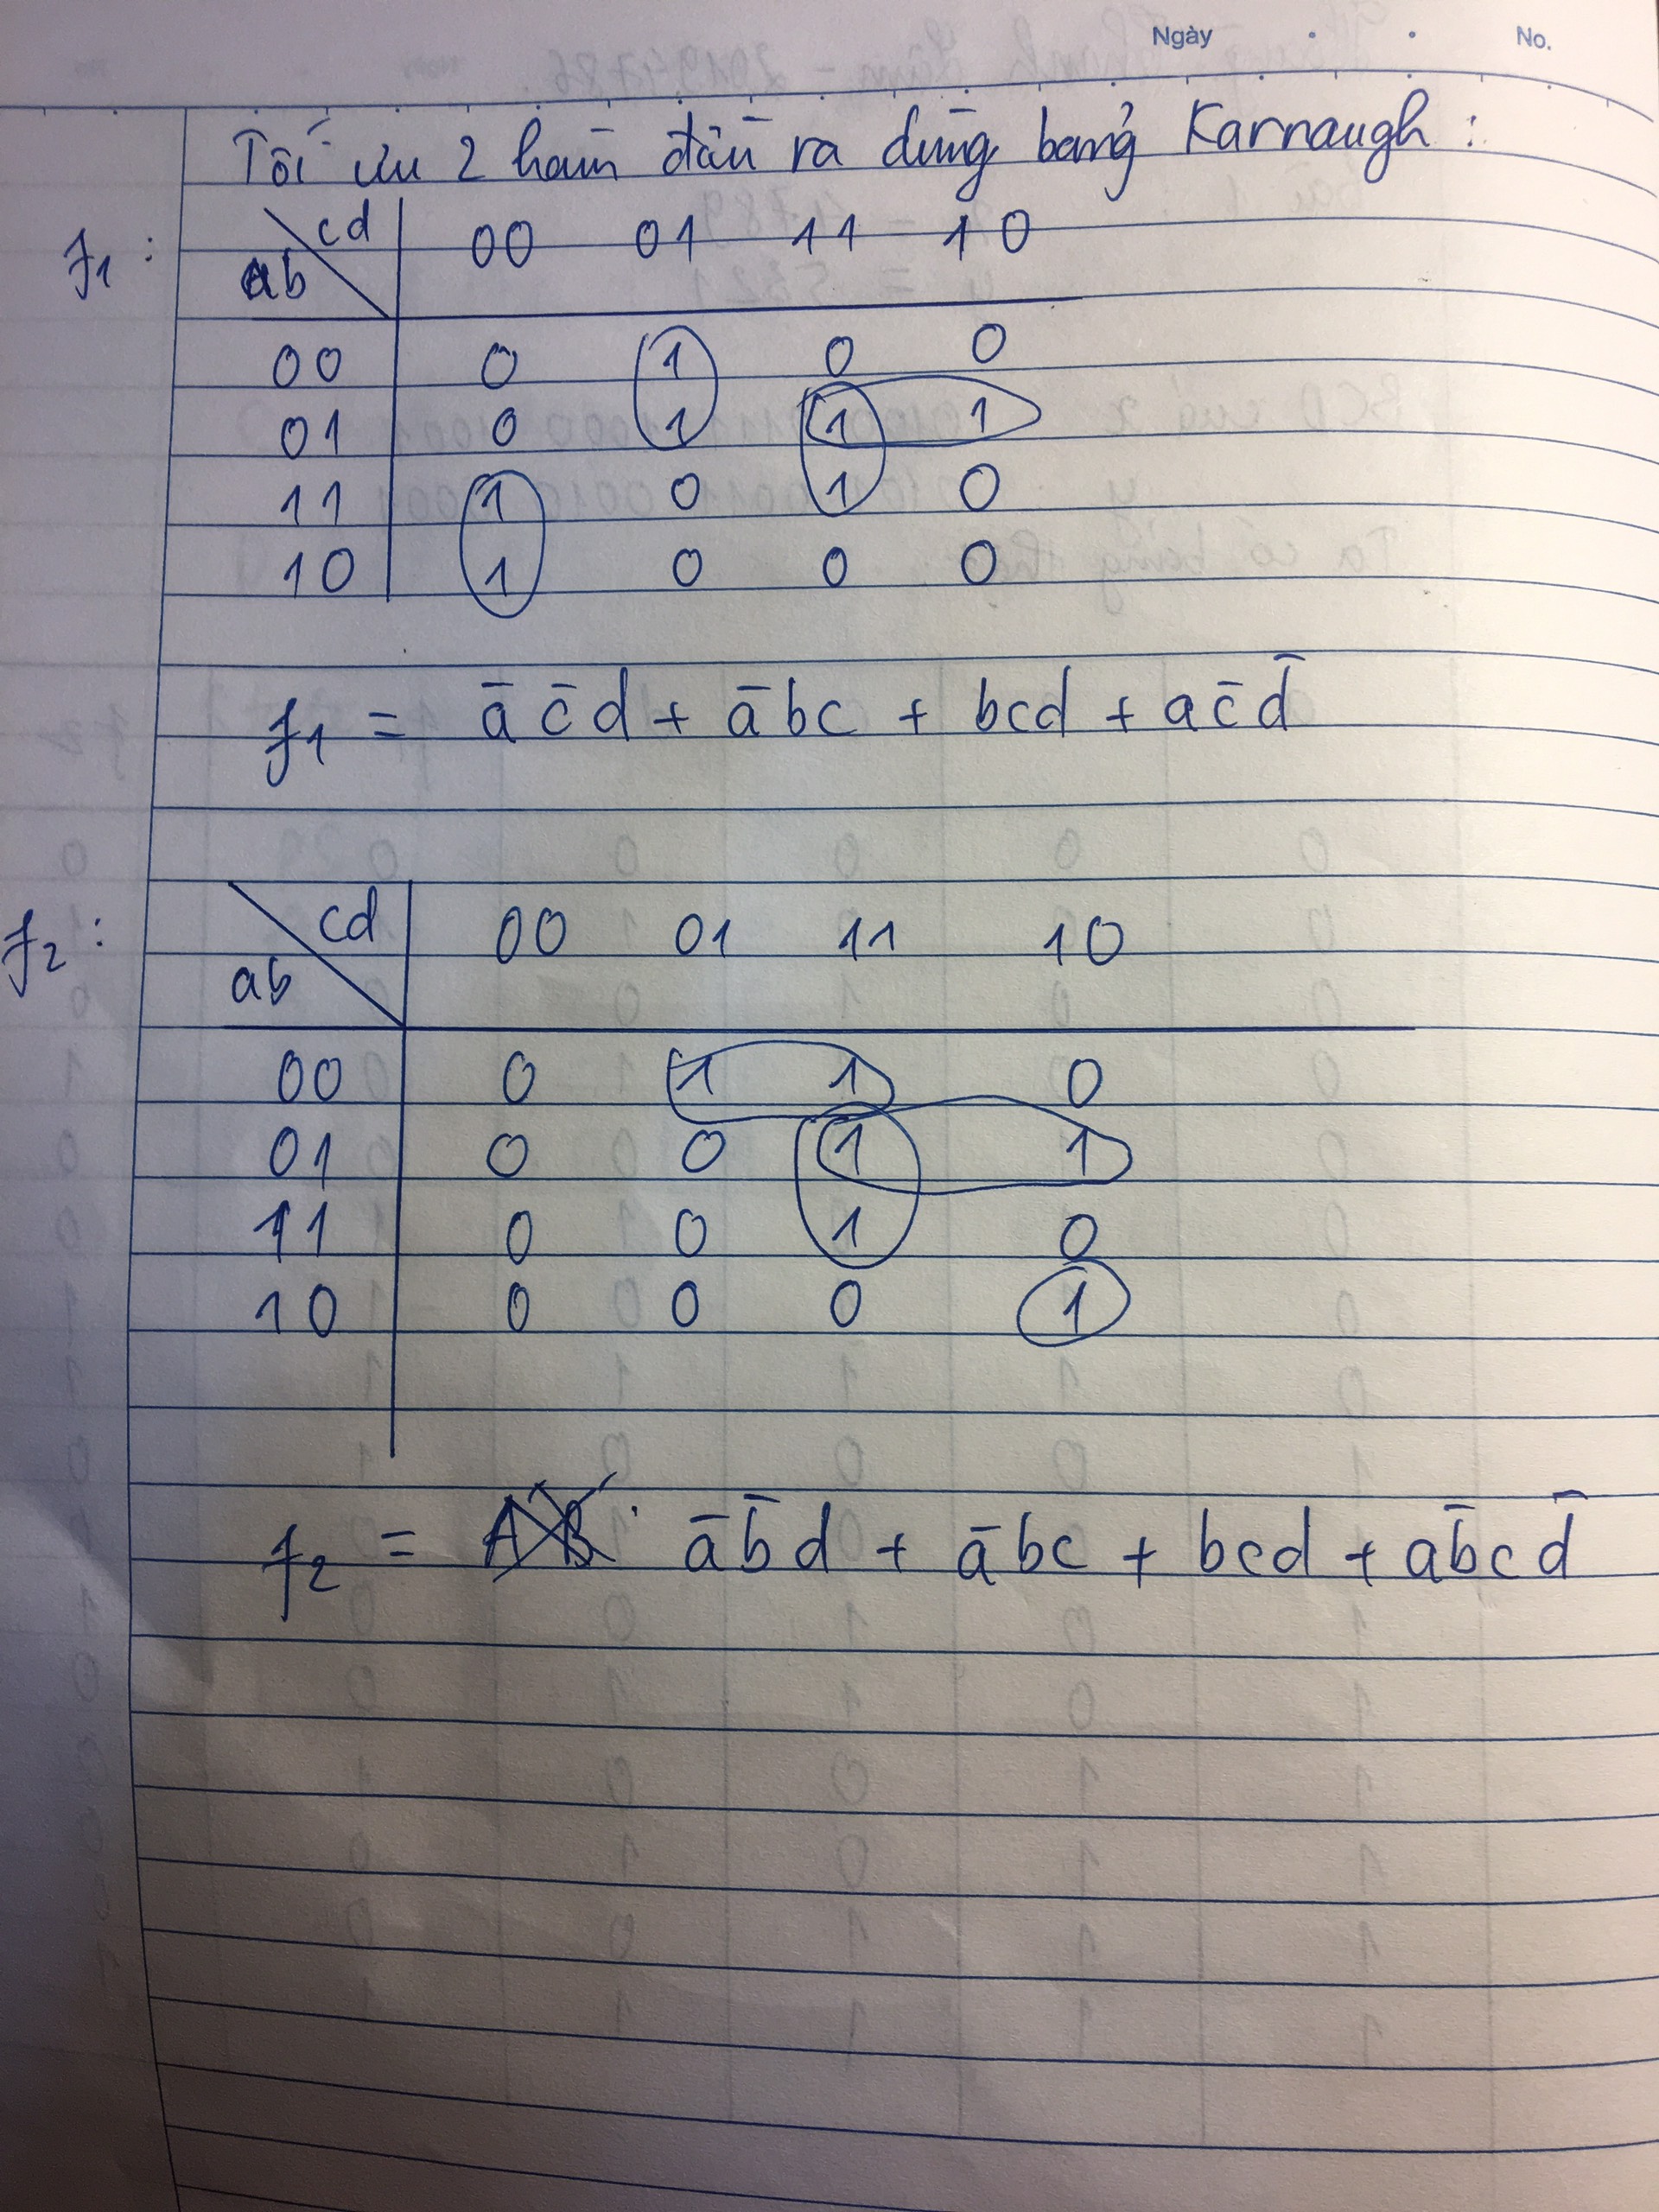 Ngày No.
Tối ưu 2 hàm đầu ra dùng bảng Karnaugh :
f₁ : ab \ cd 00 01 11 10
00 0 1 0 0
01 0 1 1 1
11 1 0 1 0
10 1 0 0 0
f₁ = a̅ c̅ d + a̅ b c + b c d + a c̅ d̅
f₂ : ab \ cd 00 01 11 10
00 0 1 1 0
01 0 0 1 1
11 0 0 1 0
10 0 0 0 1
f₂ = a̅ b̅ d + a̅ b c + b c d + a b̅ c d̅